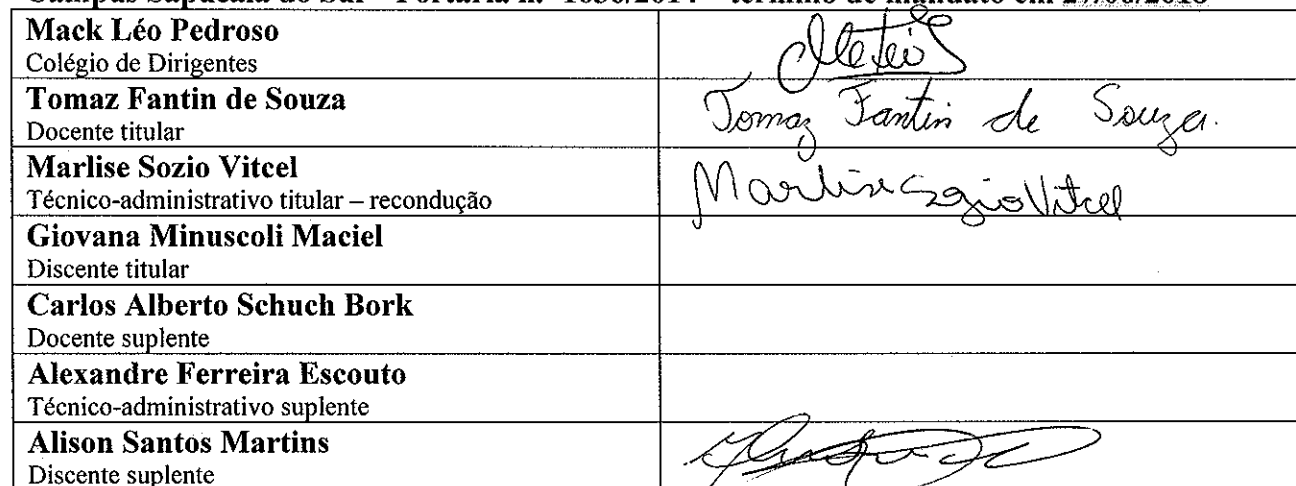 Campus Sapucaia do Sul – Portaria n.º 1650/2014 – término de mandato em 27/06/2018
Mack Léo Pedroso
Colégio de Dirigentes
Tomaz Fantin de Souza
Docente titular
Tomaz Fantin de Souza.
Marlise Sozio Vitcel
Técnico-administrativo titular – recondução
Marlise Sozio Vitcel
Giovana Minuscoli Maciel
Discente titular
Carlos Alberto Schuch Bork
Docente suplente
Alexandre Ferreira Escouto
Técnico-administrativo suplente
Alison Santos Martins
Discente suplente